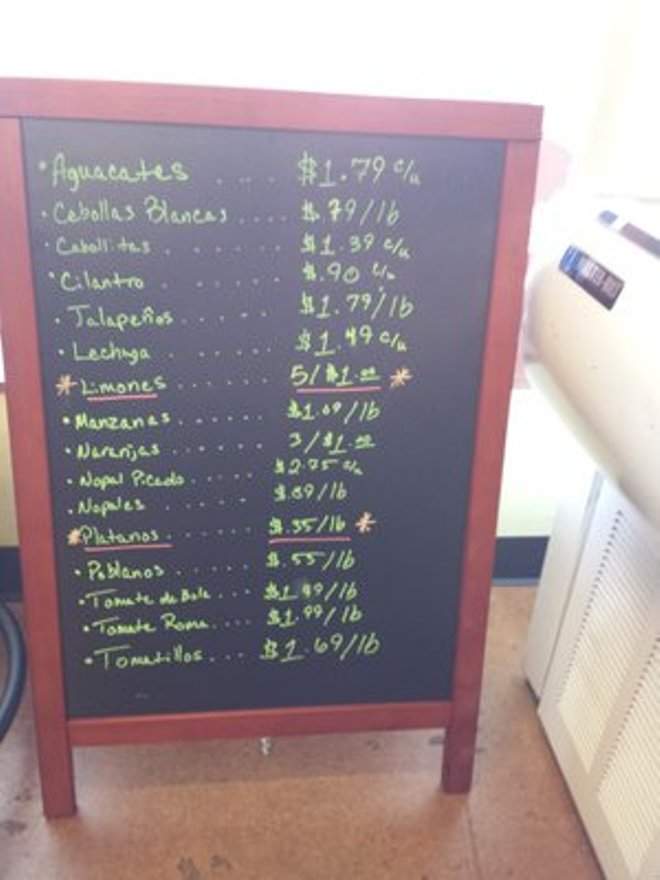 Aguacates .... $1.79 c/u
Cebollas Blancas .... $.79/lb
Cebollitas ...... $1.39 c/u
Cilantro ...... $.90 c/u
Jalapeños ...... $1.79/lb
Lechuga ...... $1.49 c/u
* Limones ...... 5/$1.00 *
Manzanas ...... $1.09/lb
Naranjas ...... 3/$1.00
Nopal Picado ..... $2.75 c/u
Nopales ..... $.89/lb
* Platanos ...... $.35/lb *
Poblanos ...... $.55/lb
Tomate de Bola ... $1.99/lb
Tomate Roma .... $1.99/lb
Tomatillos .... $1.69/lb